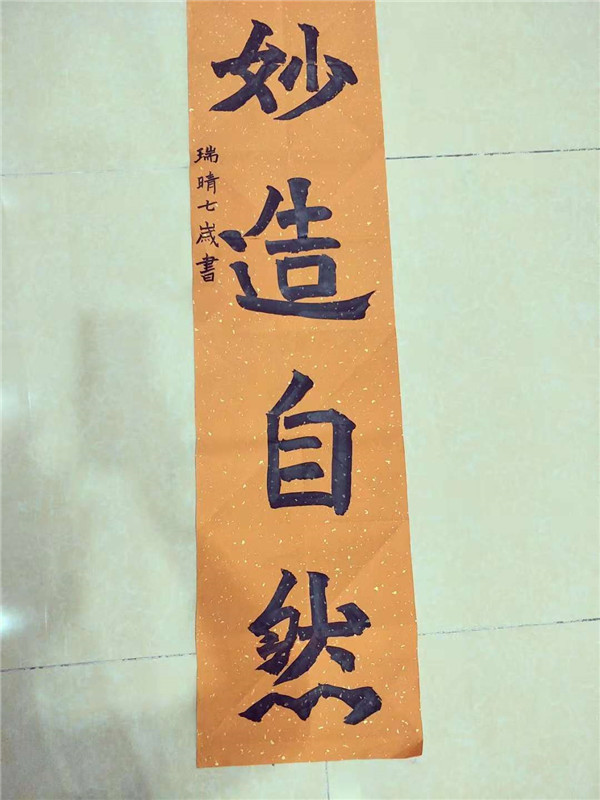 妙造自然
瑞晴七歲書